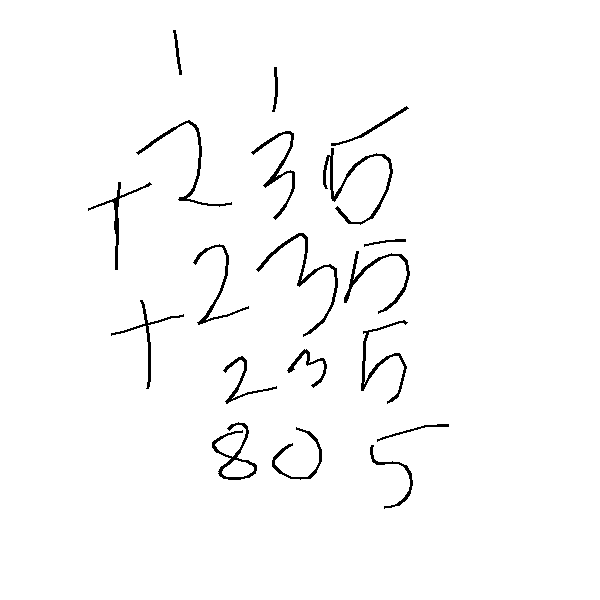 1 1
235
+ 235
+ 235
805